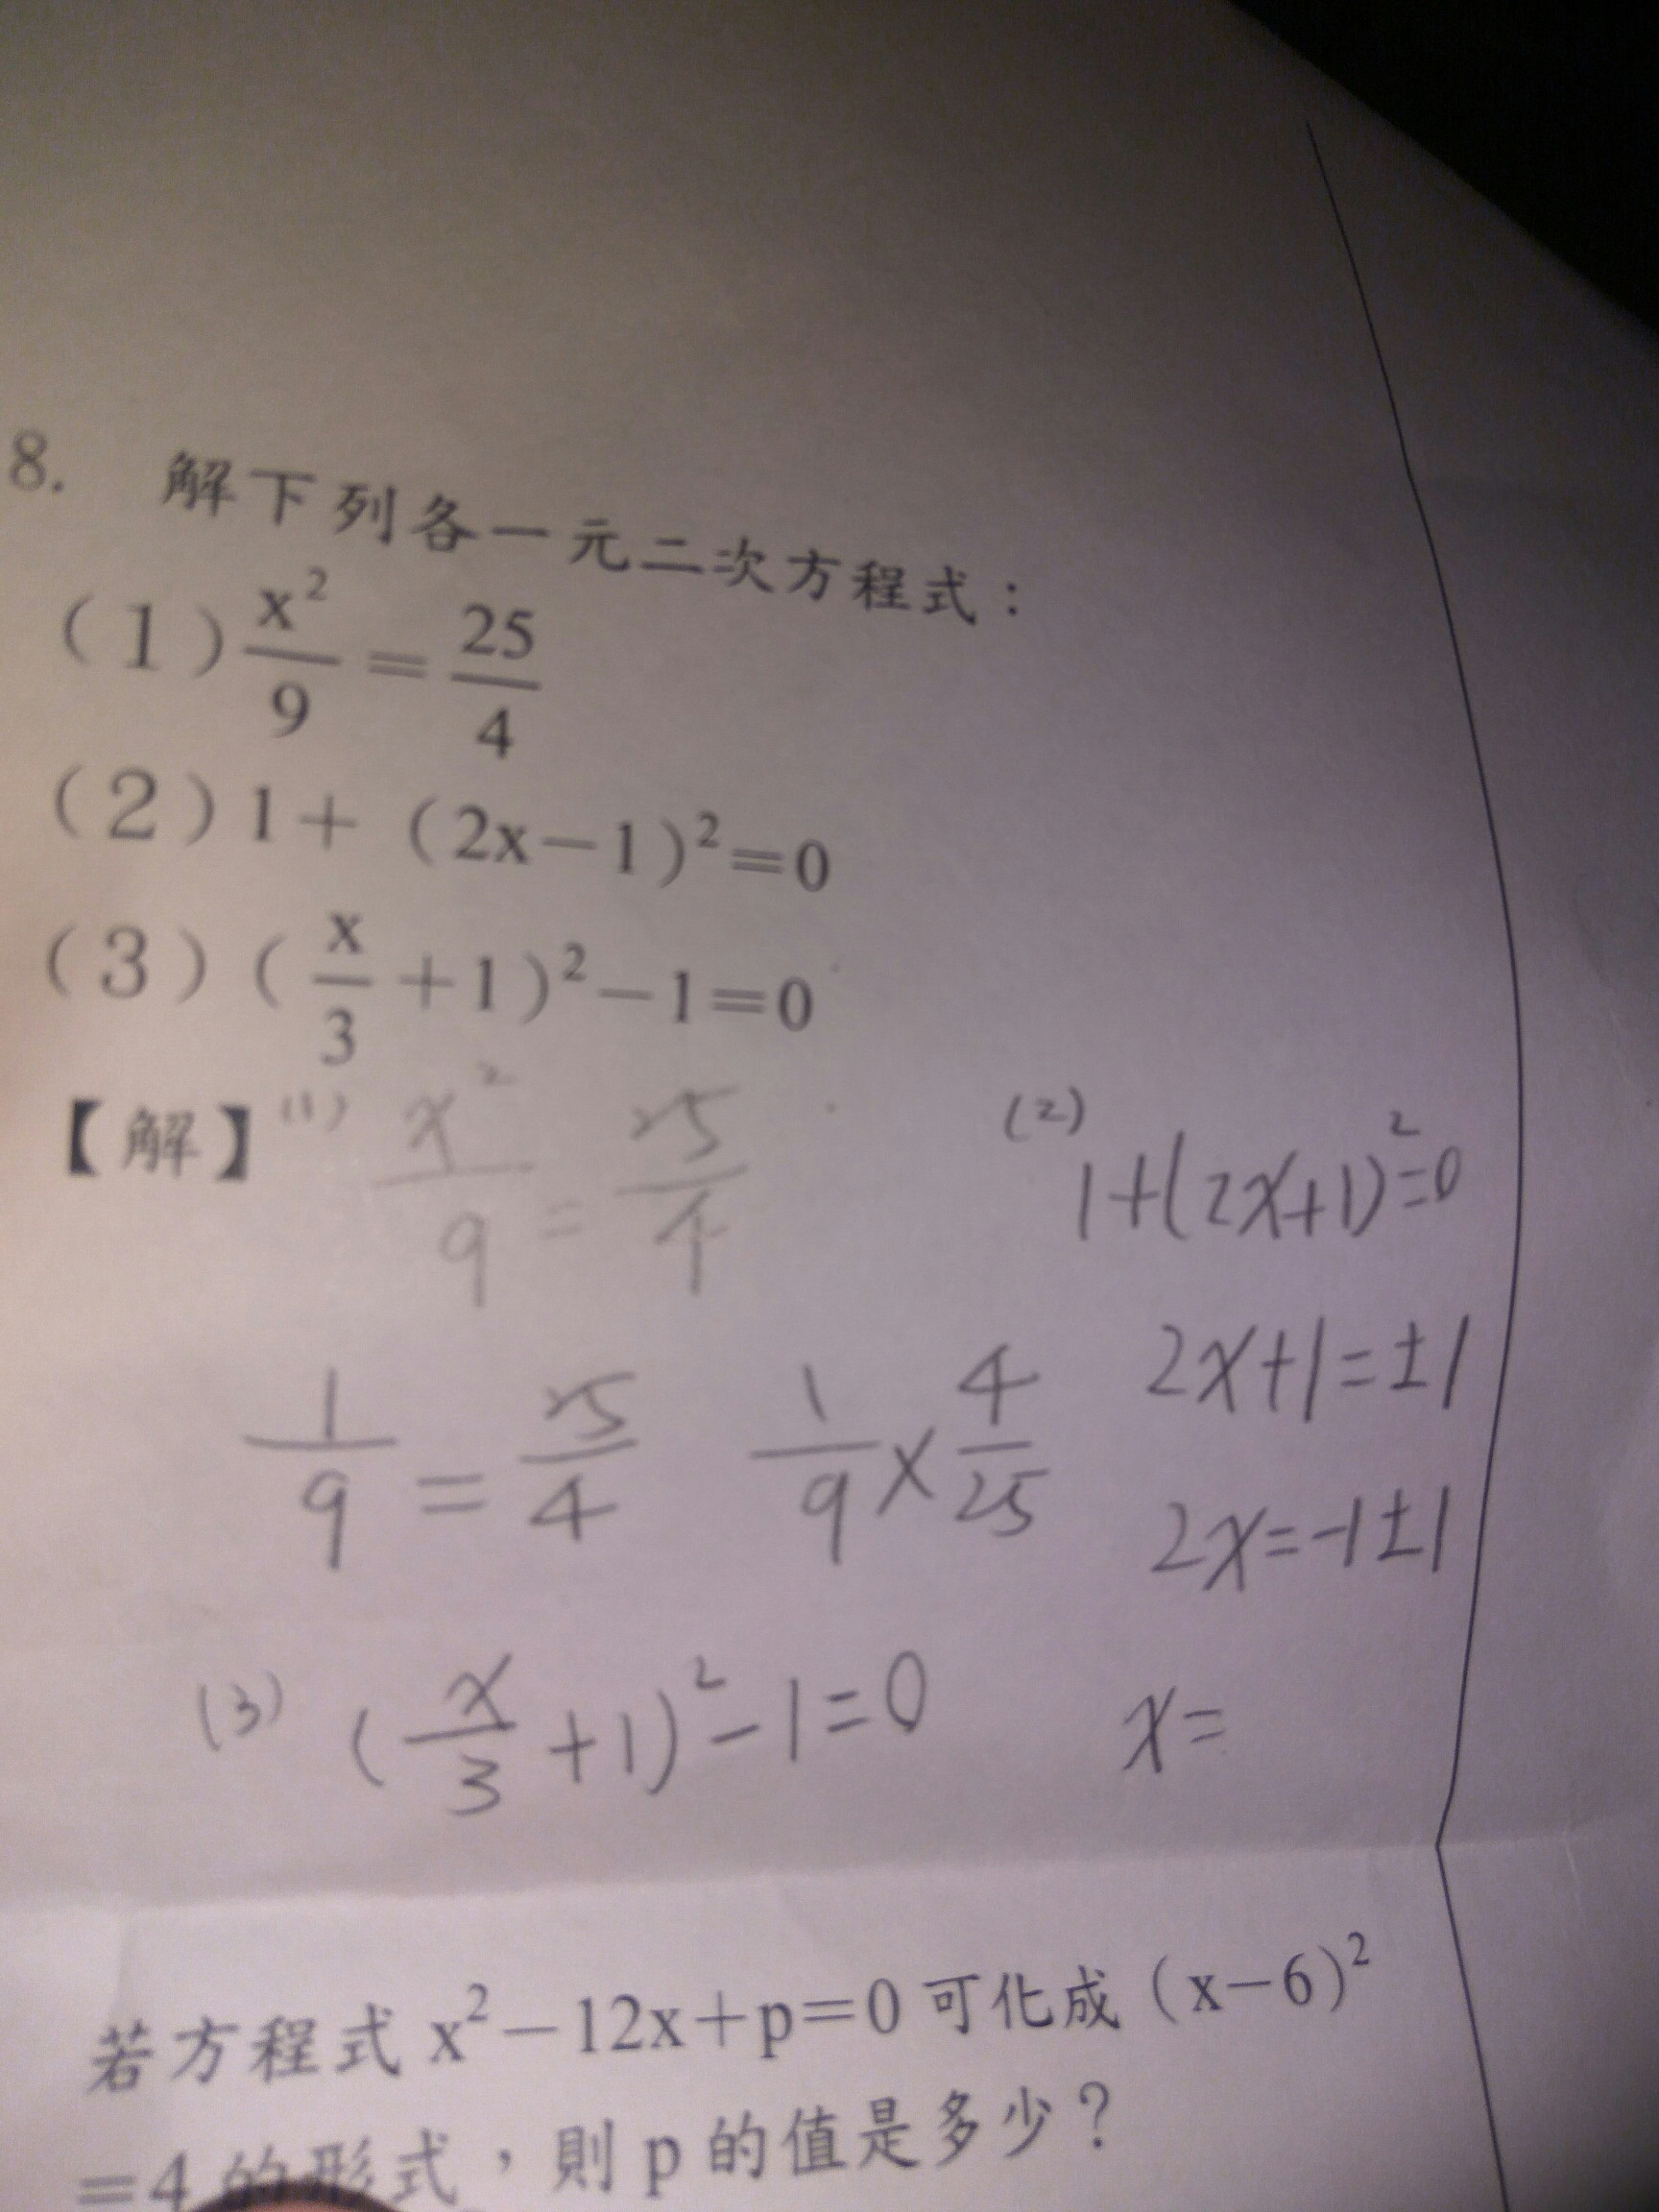 8. 解下列各一元二次方程式：
(1) x²/9 = 25/4
(2) 1+(2x-1)²=0
(3) (x/3+1)²-1=0
【解】(1) x²/9 = 25/4
(2) 1+(2x+1)²=0
1/9 = 25/4 1/9 × 4/25
2x+1=±1
2x=-1±1
x=
(3) (x/3+1)²-1=0
若方程式 x²-12x+p=0 可化成 (x-6)²
=4 的形式，則 p 的值是多少？